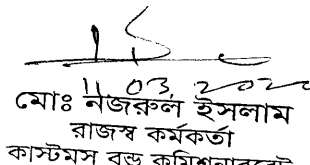 11.03.2020
মোঃ নজরুল ইসলাম
রাজস্ব কর্মকর্তা
কাস্টমস বন্ড কমিশনারেট